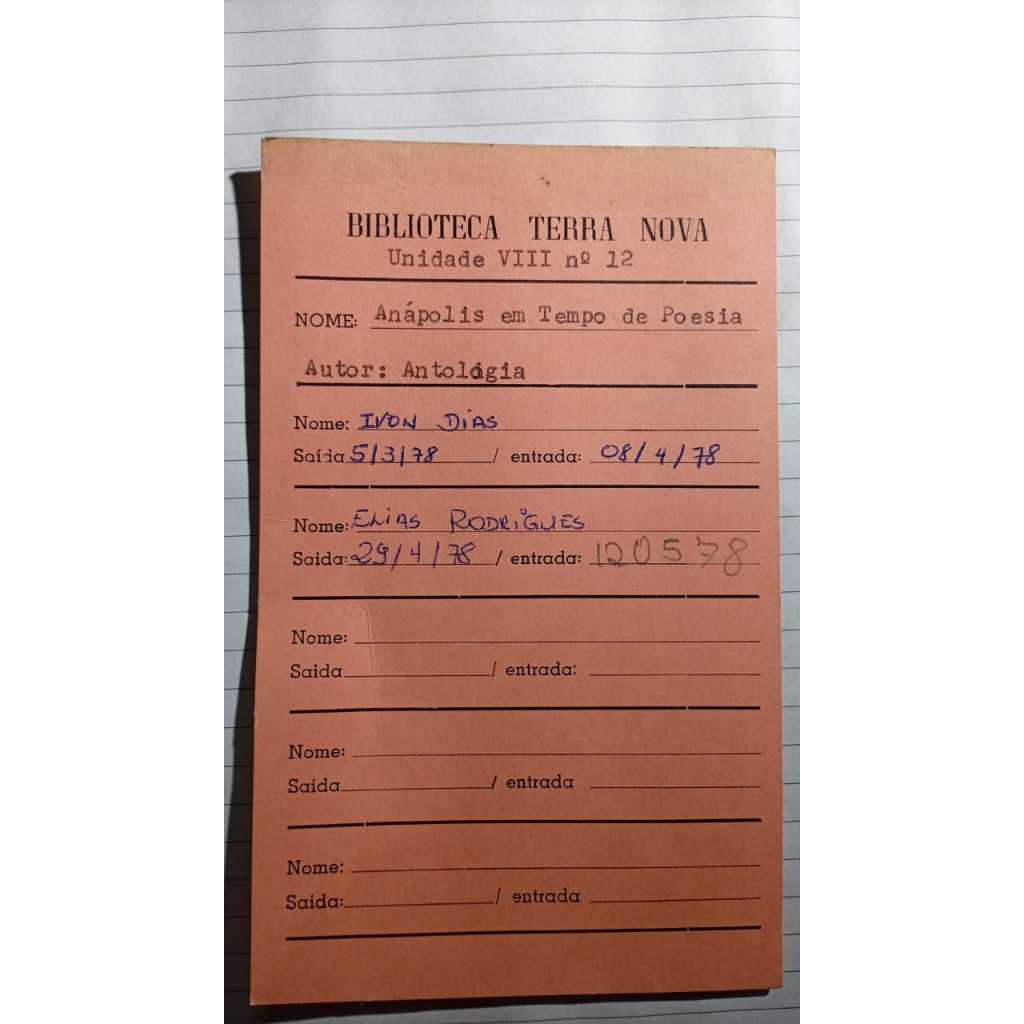 BIBLIOTECA TERRA NOVA
Unidade VIII nº 12
NOME: Anápolis em Tempo de Poesia
Autor: Antológia
Nome: IVON DIAS
Saída 5/3/78 / entrada: 08/4/78
Nome: ELIAS RODRIGUES
Saida: 29/4/78 / entrada: 120578
Nome:
Saida / entrada:
Nome:
Saida / entrada
Nome:
Saida: / entrada